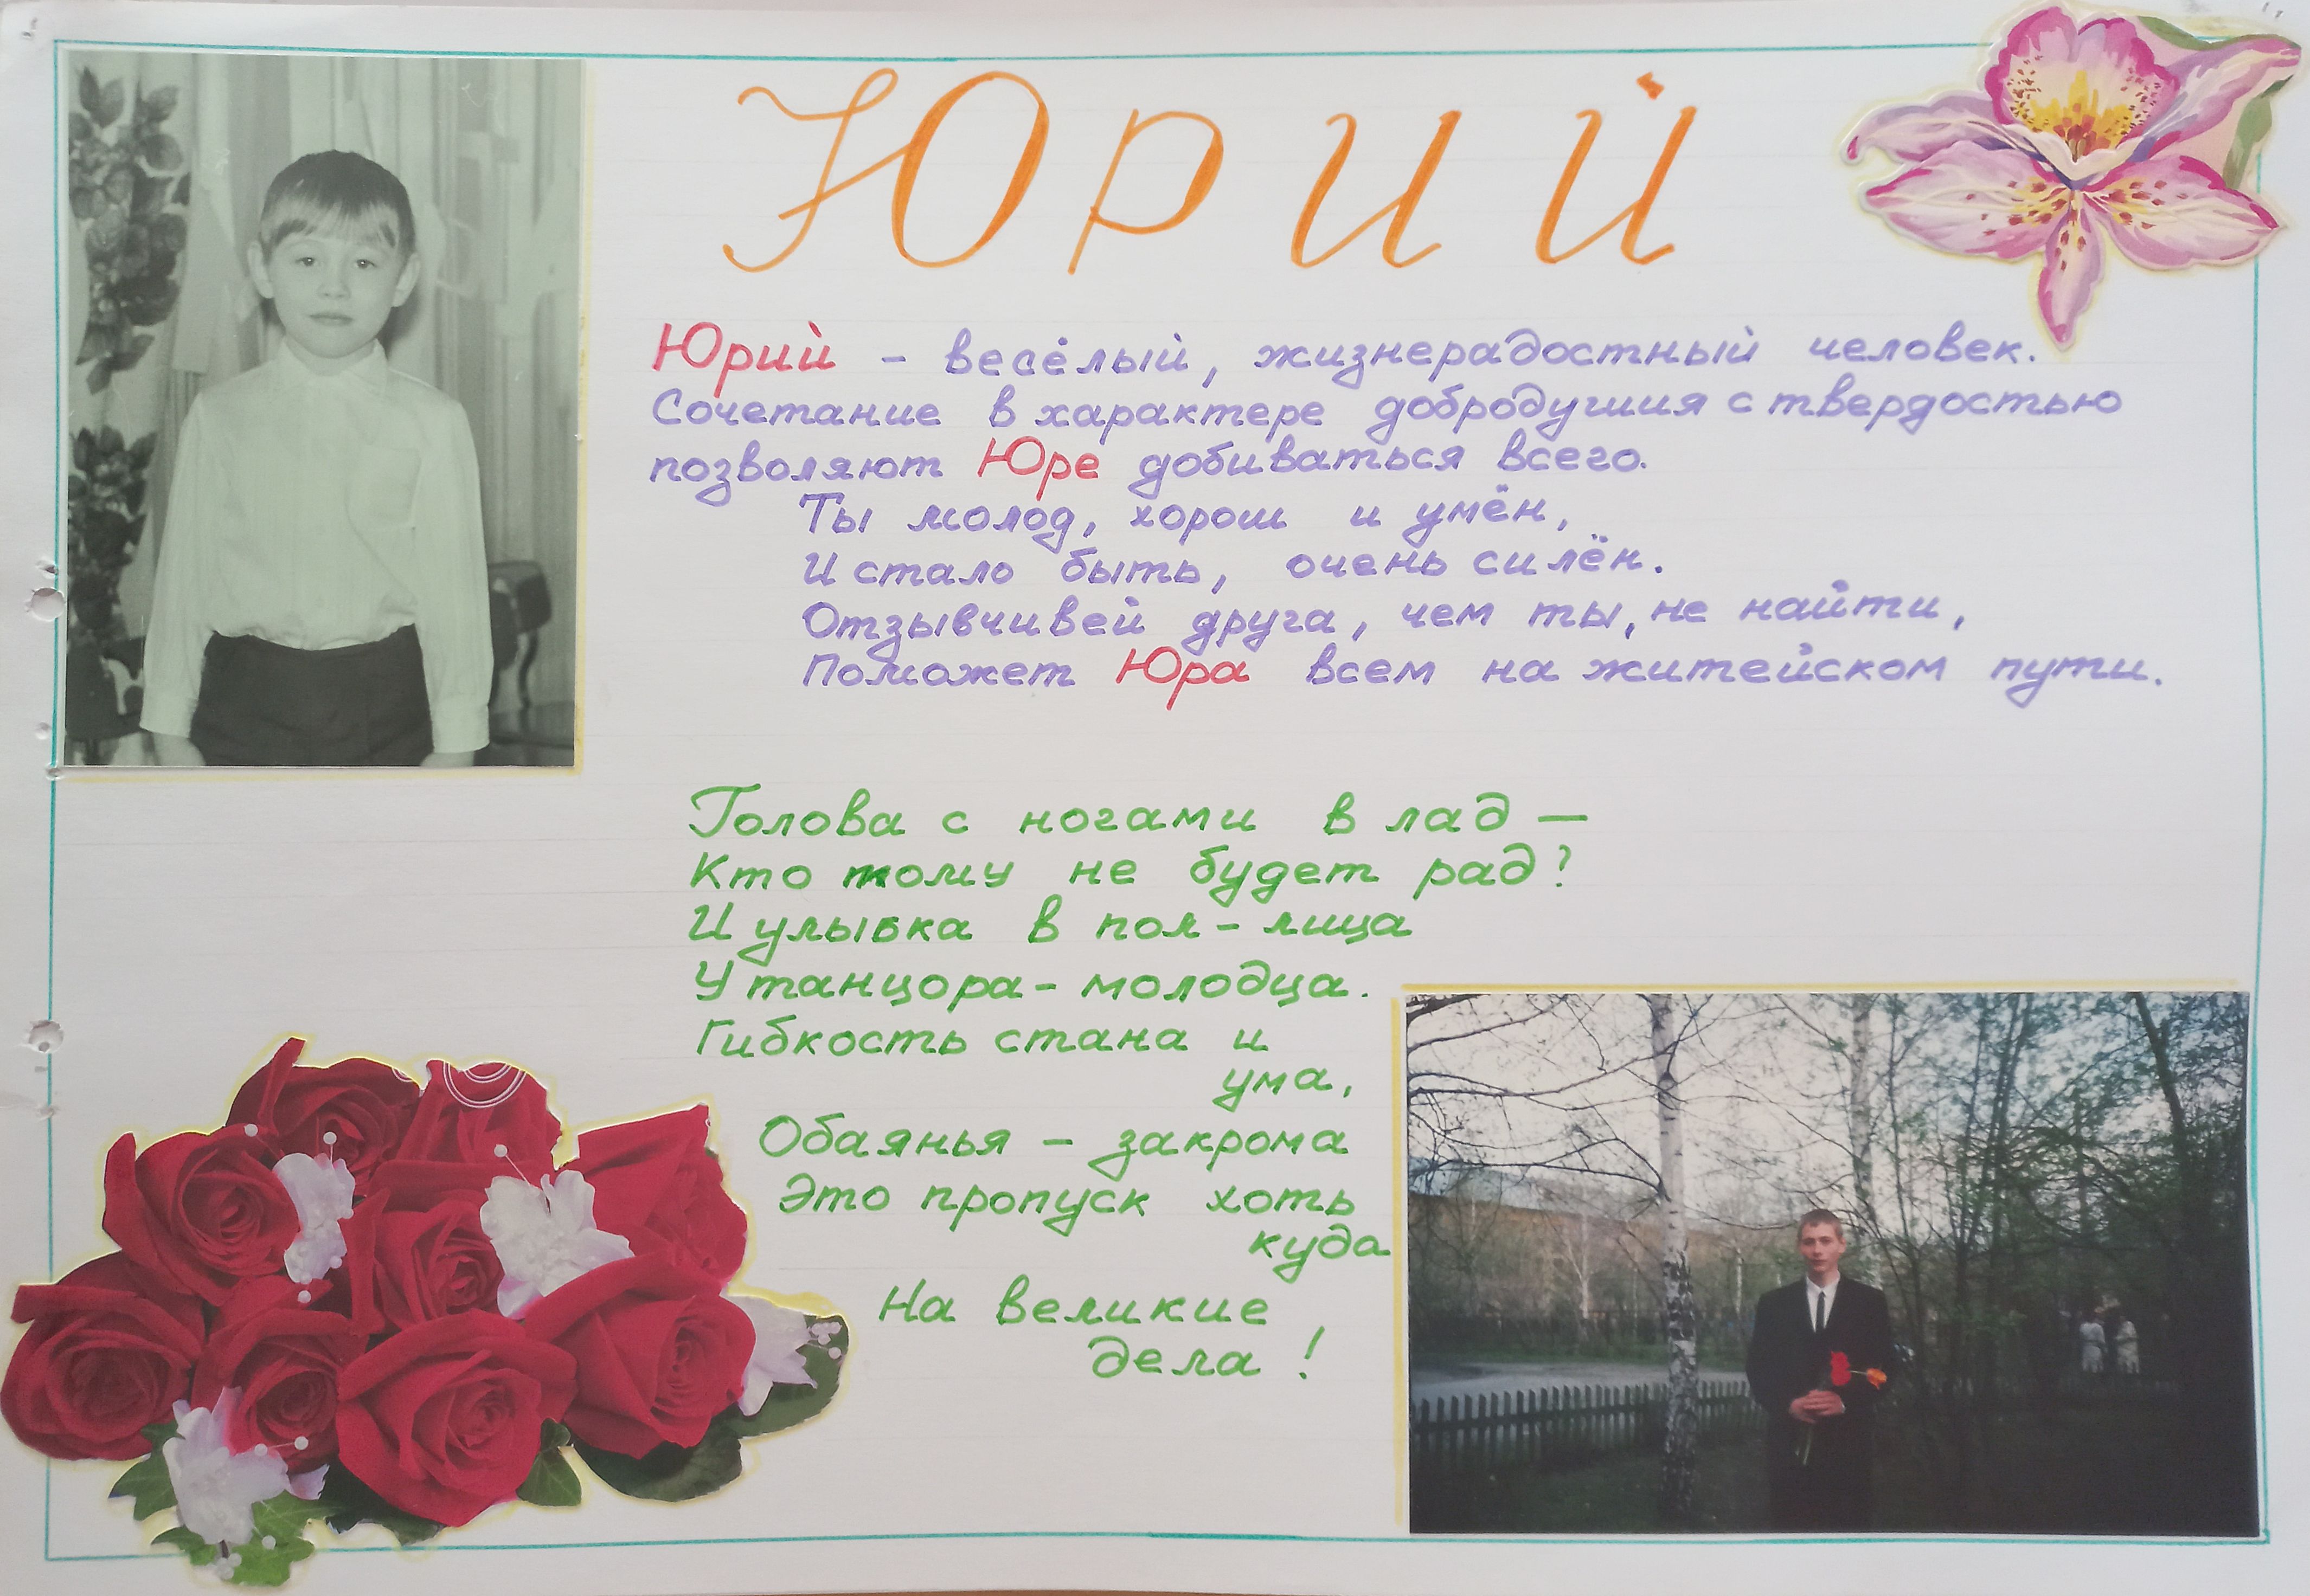 Юрий
Юрий - весёлый, жизнерадостный человек.
Сочетание в характере добродушия с твердостью
позволяют Юре добиваться всего.
Ты молод, хорош и умён,
И стало быть, очень силён.
Отзывчивей друга, чем ты, не найти,
Поможет Юра всем на житейском пути.
Голова с ногами в лад —
Кто тому не будет рад?
И улыбка в пол-лица
У танцора-молодца.
Гибкость стана и
ума,
Обаянья - закрома
Это пропуск хоть
куда
На великие
дела!